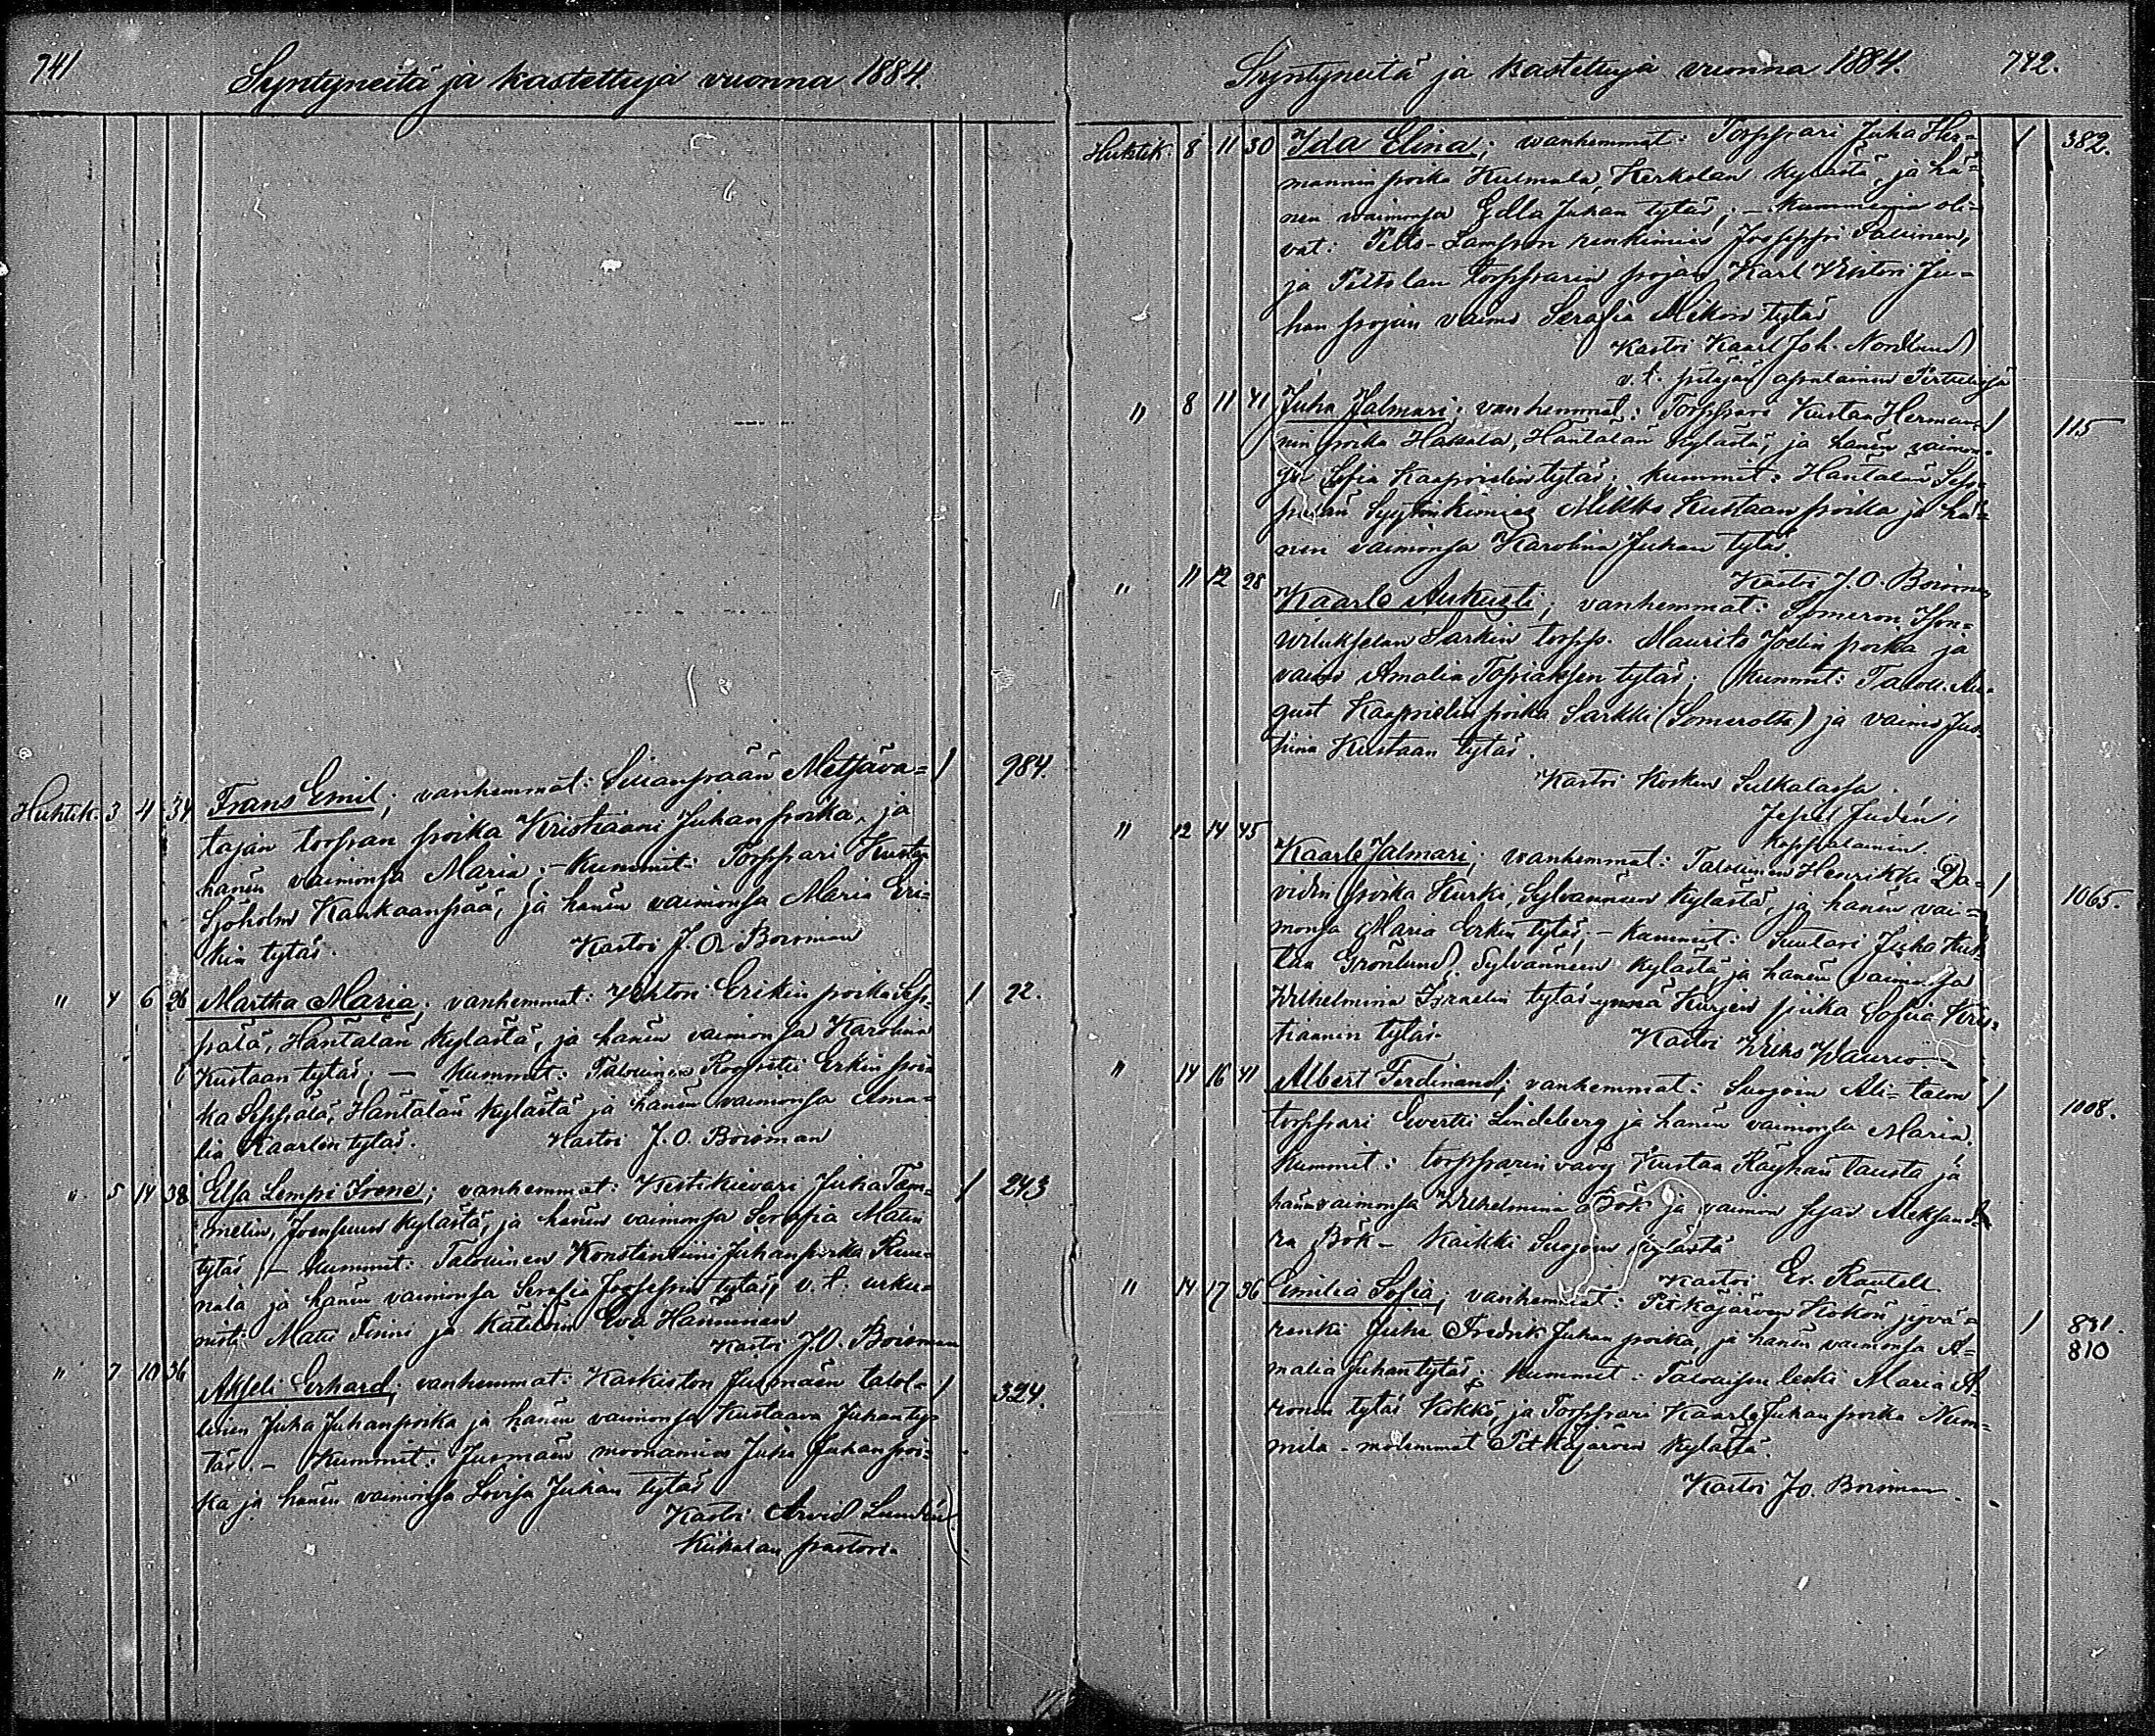 741
Syntyneitä ja kastettuja vuonna 1884.
Huhtik. 3 4 34 Frans Emil; vanhemmat: Suuanpään Metsäva= 1 984.
tajan torpan poika Kristiaani Juhan poika, ja
hänen vaimonsa Maria; – kummit: Torppari Kustaa
Sjöholm Kankaanpää, ja hänen vaimonsa Maria Eri=
kin tytär. Kastoi J. O. Boisman
" 4 6 26 Martha Maria; vanhemmat: Vihtori Erikin poika Sep= 1 22.
pälä, Häntälän kylästä, ja hänen vaimonsa Karolina
Kustaan tytär; – kummit: Talollinen Erkin poi=
ka Seppälä, Häntälän kylästä ja hänen vaimonsa Ama=
lia Kaarlen tytär. Kastoi J. O. Boisman
" 5 14 38 Elsa Lempi Irene; vanhemmat: Kestikievari Juha Tam= 1 243
melin, Joensuun kylästä, ja hänen vaimonsa Serafia Matin
tytär – kummit: Talollinen Konstantiini Juhan poika Kun=
nala ja hänen vaimonsa Serafia Joosepin tytär, v. t. urku=
nisti Matti Finni ja kätilön Eva Hänninen
Kastoi J. O. Boisman
" 7 10 36 Akseli Gerhard; vanhemmat: Kaskiston Jusmäen talol= 1 324.
linen Juha Juhanpoika ja hänen vaimonsa Kustaava Juhan ty=
tär. – Kummit: Jusmäen muonamies Juha Juhan poi=
ka ja hänen vaimonsa Lovisa Juhan tytär
Kastoi Arvid Lundén
Kiikalan pastori.
Syntyneitä ja kastettuja vuonna 1884. 742.
Huhtik. 8 11 30 Ida Elina; wanhemmat: Torppari Juha Her= 1 382.
mannin poika Kulmala, Kerkolan kylästä, ja hä=
nen waimonsa Edla Juhan tytär; – kummeina oli=
vat: Pelto-Lampson renkimies Jooseppi Salminen,
ja Peltolan Torpparin pojan Karl Vihtori Ju=
han pojan vaimo Serafia Mikon tytär
Kastoi Kaarl Joh. Nordlund
v. t. pitäjän apulainen Perttelissä
" 8 11 41 Juha Jalmari; vanhemmat: Torppari Kustaa Herman= 1 115
nin poika Hakala, Häntälän kylästä, ja hänen vaimon=
sa Sofia Kaaprielin tytär; kummit: Häntälän Sep=
pälän Syytinkimies Mikko Kustaan poika ja hä=
nen vaimonsa Karolina Juhan tytär.
Kastoi J. O. Boisman
" 11 12 28 Kaarlo Aukusti; vanhemmat: Someron Ison=
wilukselan Sarkin torpp. Maurits Joelin poika ja
vaimo Amalia Topiaksen tytär. Kummit: Taloll. Au=
gust Kaaprielin poika Sarkki (Somerolta) ja vaimo Jus=
tiina Kustaan tytär.
Kastoi Kosken Sulkalassa
Judén,
kappalainen.
" 12 14 45 Kaarle Jalmari; wanhemmat: Talollinen Henrikki Da= 1 1065.
vidin poika Kurki, Sylvännän kylästä, ja hänen vai=
monsa Maria Erkin tytär; – kummit: Suutari Juha Kus=
taa Grönlund, Sylvännän kylästä, ja hänen vaimonsa
Wilhelmina Israelin tytär ynnä Kurjen piika Sofia Kris=
tiaanin tytär. Kastoi Wilho Waurio.
" 14 16 41 Albert Ferdinand; vanhemmat: Suojoen Ali=talon 1 1008.
torppari Evertti Lindeberg ja hänen vaimonsa Maria.
Kummit: torpparin vävy Kustaa Räyhän tausta ja
hänen vaimonsa Wilhelmina Böök ja vaimon sisar Aleksand=
ra Bök – kaikki Suojoen kylästä
Kastoi Er. Rautell.
" 14 17 36 Emilia Sofia; vanhemmat: Pitkäjärven Kokon jyvä= 1 831.
renki Juha Fredrik Juhan poika, ja hänen vaimonsa A= 810
malia Juhan tytär; kummit: Talollisen leski Maria A=
ronin tytär Kokko, ja Torppari Kaarle Juhan poika Num=
mila – molemmat Pitkäjärven kylästä.
Kastoi J. O. Boisman.